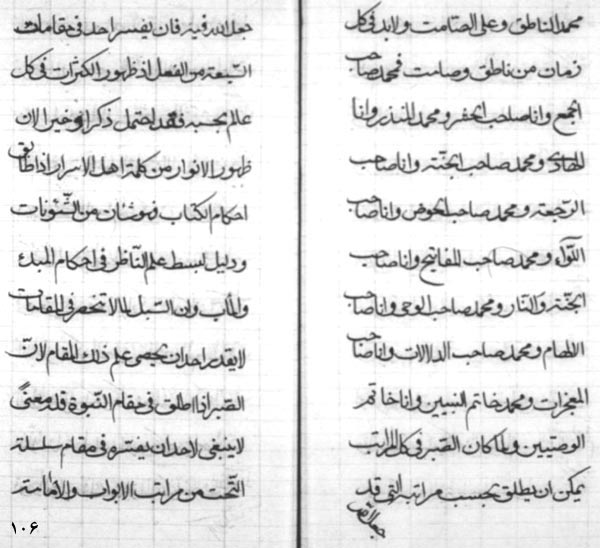 محمد الناطق وعلى الصامت ولابد فى كل
زمان من ناطق وصامت فمحمد صاحب
الجمع وانا صاحب الحشر ومحمد المنذر وانا
الهادى ومحمد صاحب الجنة وانا صاحب
الرجعة ومحمد صاحب الحوض وانا صاحب
اللواء ومحمد صاحب المفاتيح وانا صاحب
الجنة والنار ومحمد صاحب الوحى وانا صاحب
الالهام ومحمد صاحب الدلالات وانا صاحب
المعجزات ومحمد خاتم النبيين وانا خاتم
الوصيين ولما كان الضمير فى كل المراتب
يمكن ان يطلق بحسب مراتبه التى قد
جعل الله
جعل الله فيه فان يفسر احد فى مقامات
السبعة من الفعل اذ ظهور الكثرات فى كل
علم بحسبه فقد احتمل ذكرا وخير الان
ظهور الانوار من كلمة اهل الاسرار اذا طابق
احكام الكتاب فهو شان من الشئونات
ودليل لبسط علم الناظر فى احكام المبدء
والماب وان السبل لما لا تنحصر فى المقامات
لا يقدر احد ان يحصى علم ذلك المقام لان
الضمير اذا اطلق فى مقام النبوة قد معنى
لا ينبغى لاحد ان يفسره فى مقام سلسلة
التحت من مراتب الابواب والامامة
١٠۶